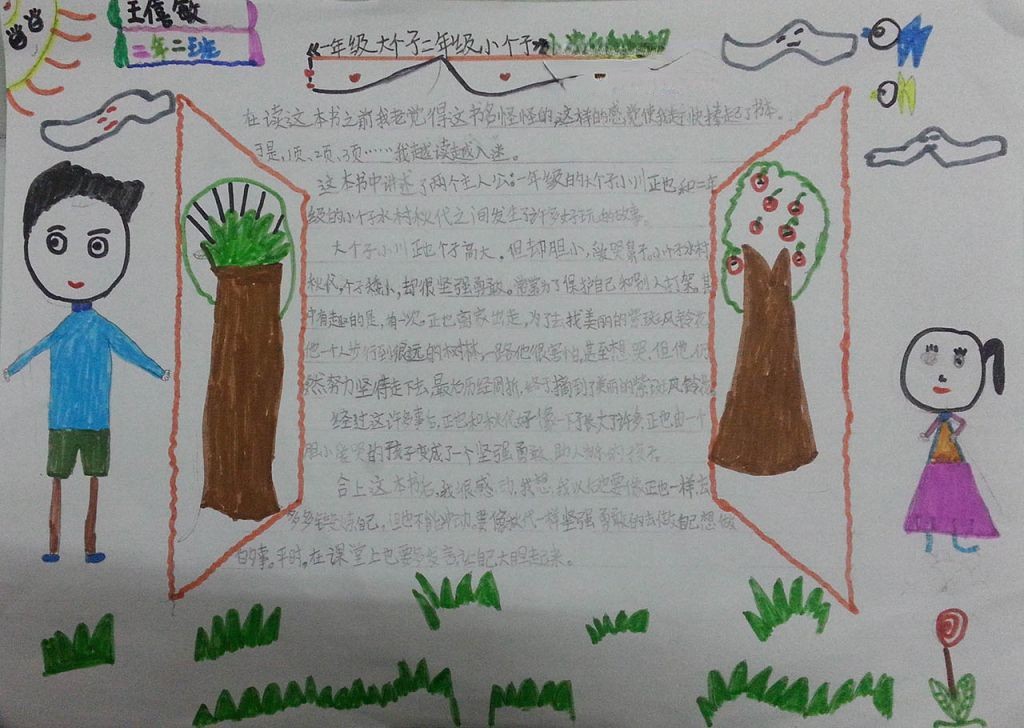 王僖敏
二年二班
《一年级大个子二年级小个子
在读这本书之前我老觉得这书名怪怪的,这样的感觉使我赶快捧起了书本。
于是,1页、2页、3页……我越读越入迷。
这本书中讲述了两个主人公:一年级的大个子小川正也和二年
级的小个子水村秋代之间发生了许多好玩的故事。
大个子小川正也个子高大。但却胆小,爱哭鼻子,小个子水村
秋代,个子矮小,却很坚强勇敢。常常为了保护自己和别人打架。其
中有趣的是,有一次,正也离家出走,为了去找美丽的紫斑风铃花
他一个人步行到很远的树林,一路他很害怕,甚至想哭,但他仍
然努力坚持走下去,最允历经周折,终于摘到了美丽的紫斑风铃花
经过这许多事后,正也和秋代好像一下子长大了许多,正也由一个
胆小爱哭的孩子变成了一个坚强勇敢,助人为乐的孩子。
合上这本书后,我很感动,我想,我以后也要像正也一样,去
多多锻炼自己,但也不能冲动。要像秋代一样坚强勇敢的去做自己想做
的事。平时,在课堂上也要多发言让自己大胆起来。